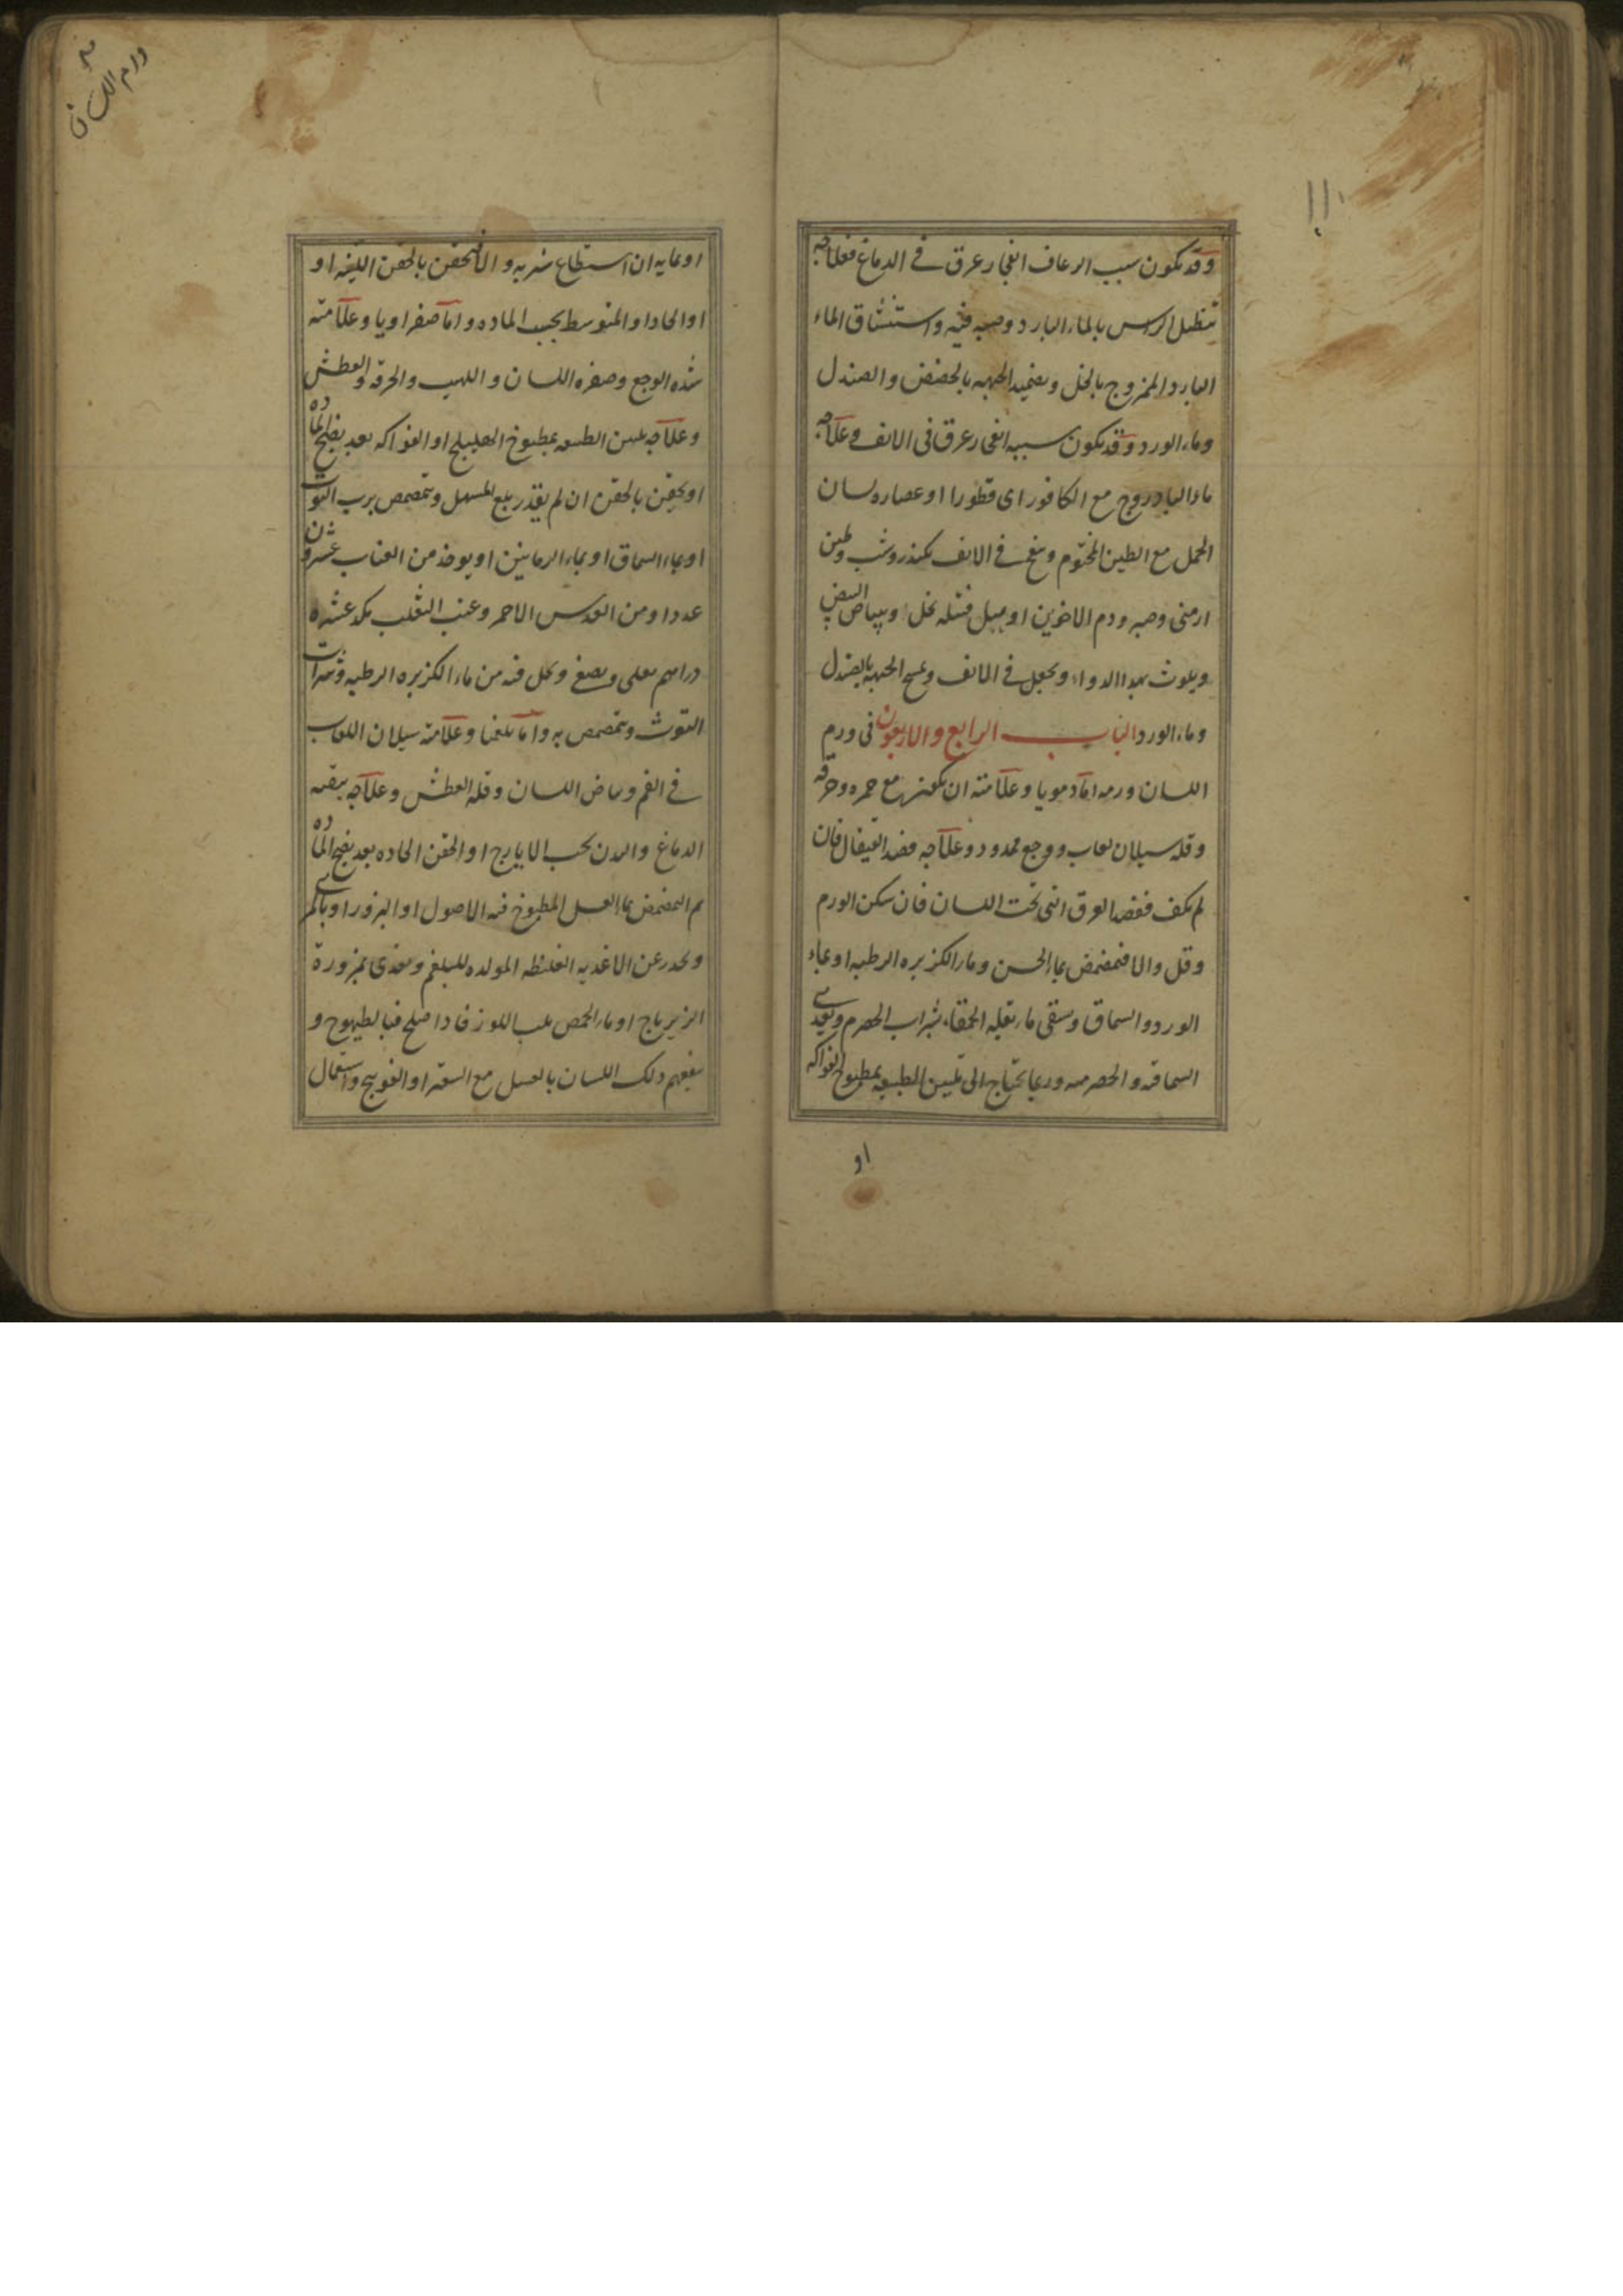 وقد يكون سبب الرعاف انفجار عرق في الدماغ فعلاجه
تنطيل الراس بالماء البارد وصبه فيه واستنشاق الماء
البارد الممزوج بالخل وتضميد الجبهه بالحضض والصندل
وماء الورد وقد يكون سببه انفجار عرق في الانف وعلاجه
ماء البادروج مع الكافور اى قطورا او عصاره لسان
الحمل مع الطين المختوم وينفخ في الانف كندر وشب وطين
ارمنى وصبر ودم الاخوين او يبل فتيله بخل او ببياض البيض
ويلوث بهذا الدواء ويجعل في الانف ويمسح الجبهه بالصندل
وماء الورد الباب الرابع والاربعون في ورم
اللسان ورمه اما دمويا وعلامته ان يكون مع حمره وحرقه
وقله سيلان لعاب ووجع ممدود وعلاجه فصد القيفال فان
لم يكف ففصد العرق التى تحت اللسان فان سكن الورم
وقل والا فتمضمض بماء الخس وماء الكزبره الرطبه او بماء
الورد والسماق وسقى ماء بقله الحمقاء بشراب الحصرم ويغذى
السماقيه والحصرميه وربما يحتاج الى تليين الطبيعه بمطبوخ الفواكه
او
ورم اللسان
او بمايه ان استطاع شربه والا فيحقن بالحقن اللينه او
او الحاد او المتوسط بحسب الماده واما صفراويا وعلامته
شده الوجع وصفره اللسان واللهيب والحرقه والعطش
وعلاجه تليين الطبيعه بمطبوخ الهليلج او الفواكه بعد نضج الماده
او يحقن بالحقن ان لم يقدر بلع المسهل ويتمضمض برب التوت
او بماء السماق او بماء الرمانين او يوخذ من العناب عشرون
عددا ومن العدس الاحمر وعنب الثعلب مكد عشره
دراهم يغلى ويصفى ويحل فيه من ماء الكزبره الرطبه وشراب
التوث ويتمضمض به واما بلغميا وعلامته سيلان اللعاب
في الفم وبياض اللسان وقله العطش وعلاجه تنقيه
الدماغ والبدن بحب الايارج او الحقن الحاده بعد نضج الماده
ثم التمضمض بماء العسل المطبوخ فيه الاصول او البزور او بالمرى
ويحذر عن الاغذيه الغليظه المولده للبلغم ويغذى بمزورة
الزيرباج او ماء الحمص بلب اللوز فاذا صلح فبالطيهوج و
ينفعهم دلك اللسان بالعسل مع السعتر او الفوتنج واستعمال